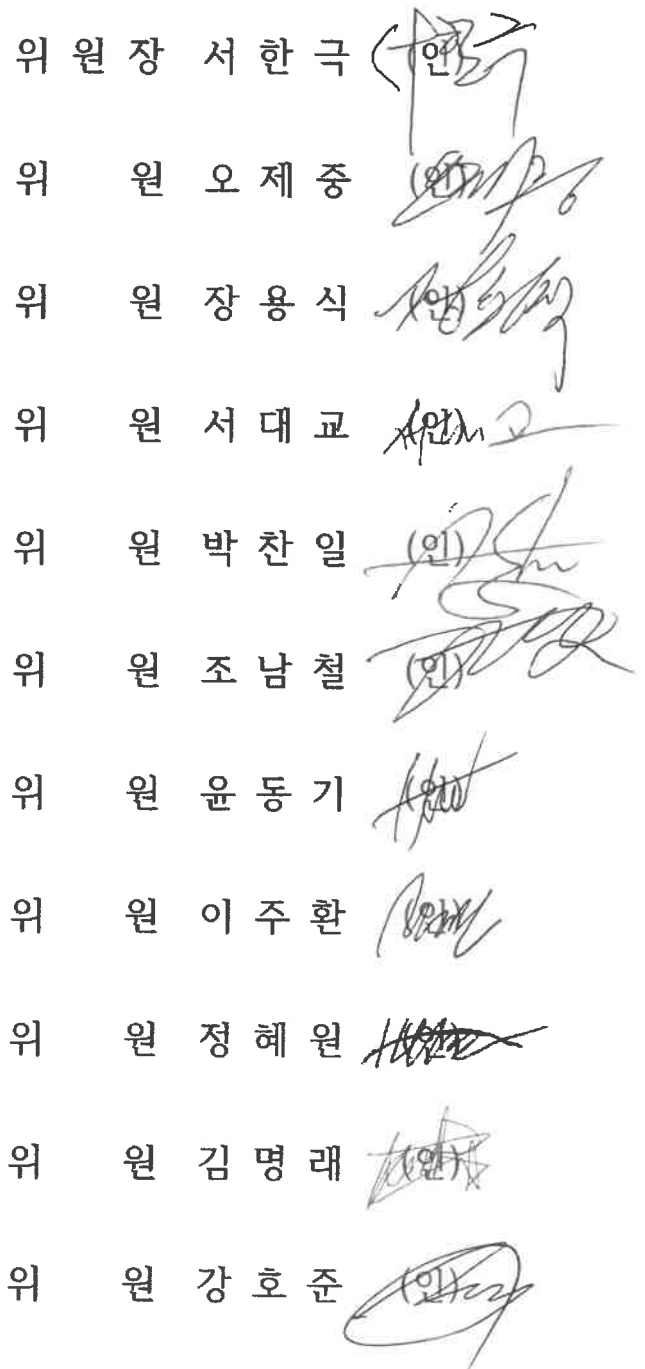 위 원 장 서 한 극 (인)
위 원 오 제 중 (인)
위 원 장 용 식 (인)
위 원 서 대 교 (인)
위 원 박 찬 일 (인)
위 원 조 남 철 (인)
위 원 윤 동 기 (인)
위 원 이 주 환 (인)
위 원 정 혜 원 (인)
위 원 김 명 래 (인)
위 원 강 호 준 (인)